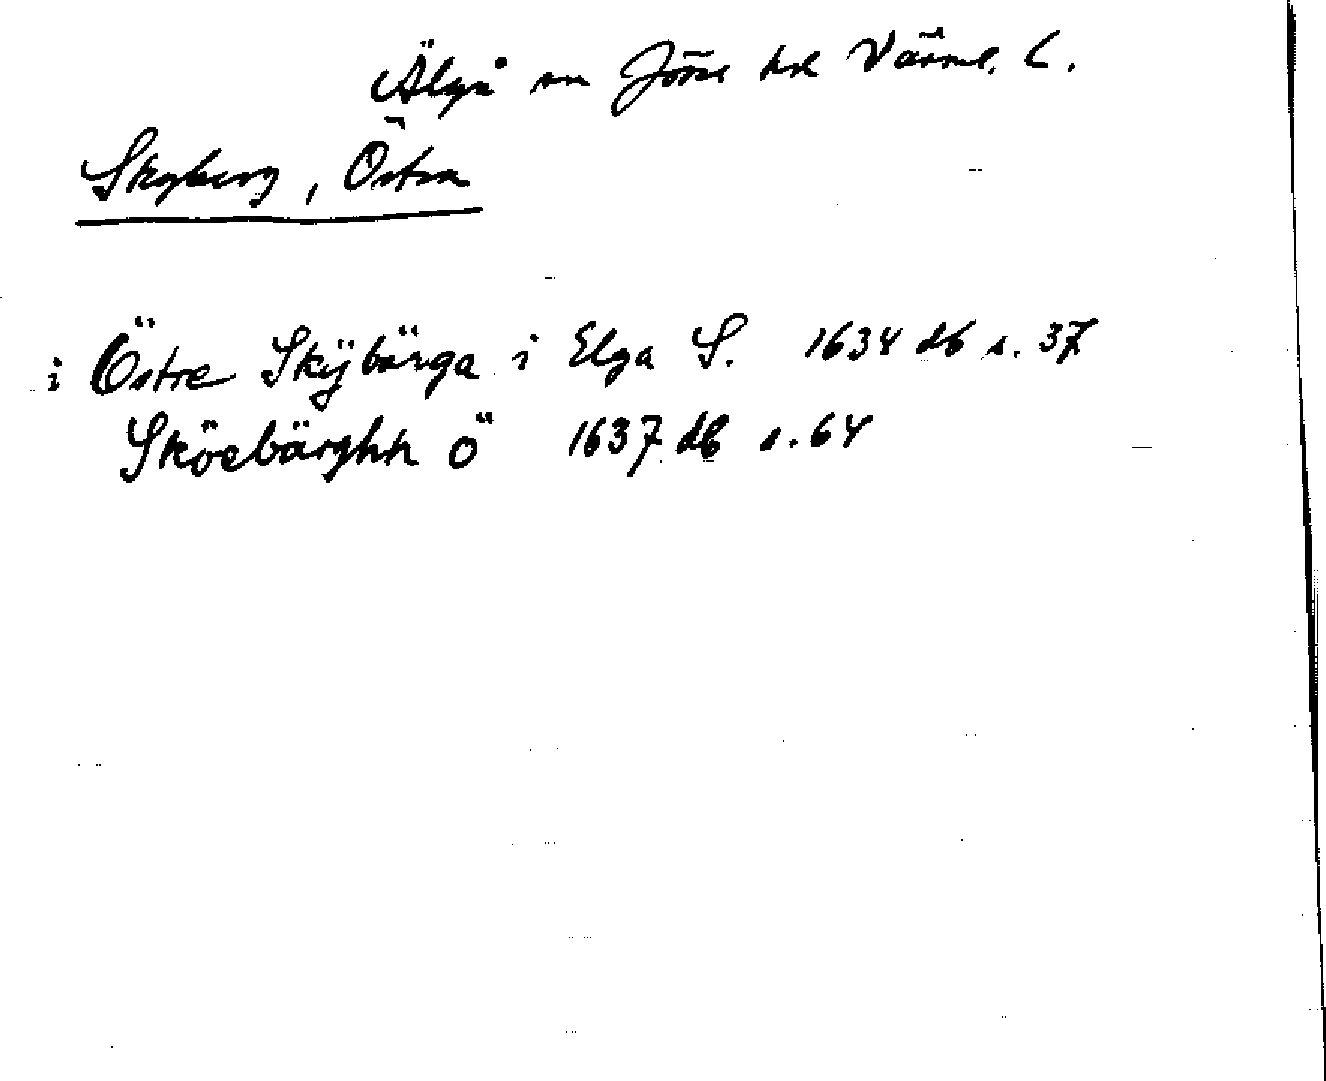 Älgå sn Jösse hd Värml. L.
Skyberg, Östra
i Östre Skÿbärga i Elga S. 1634 db s. 37
Sköebärghh Ö 1637 db s. 64